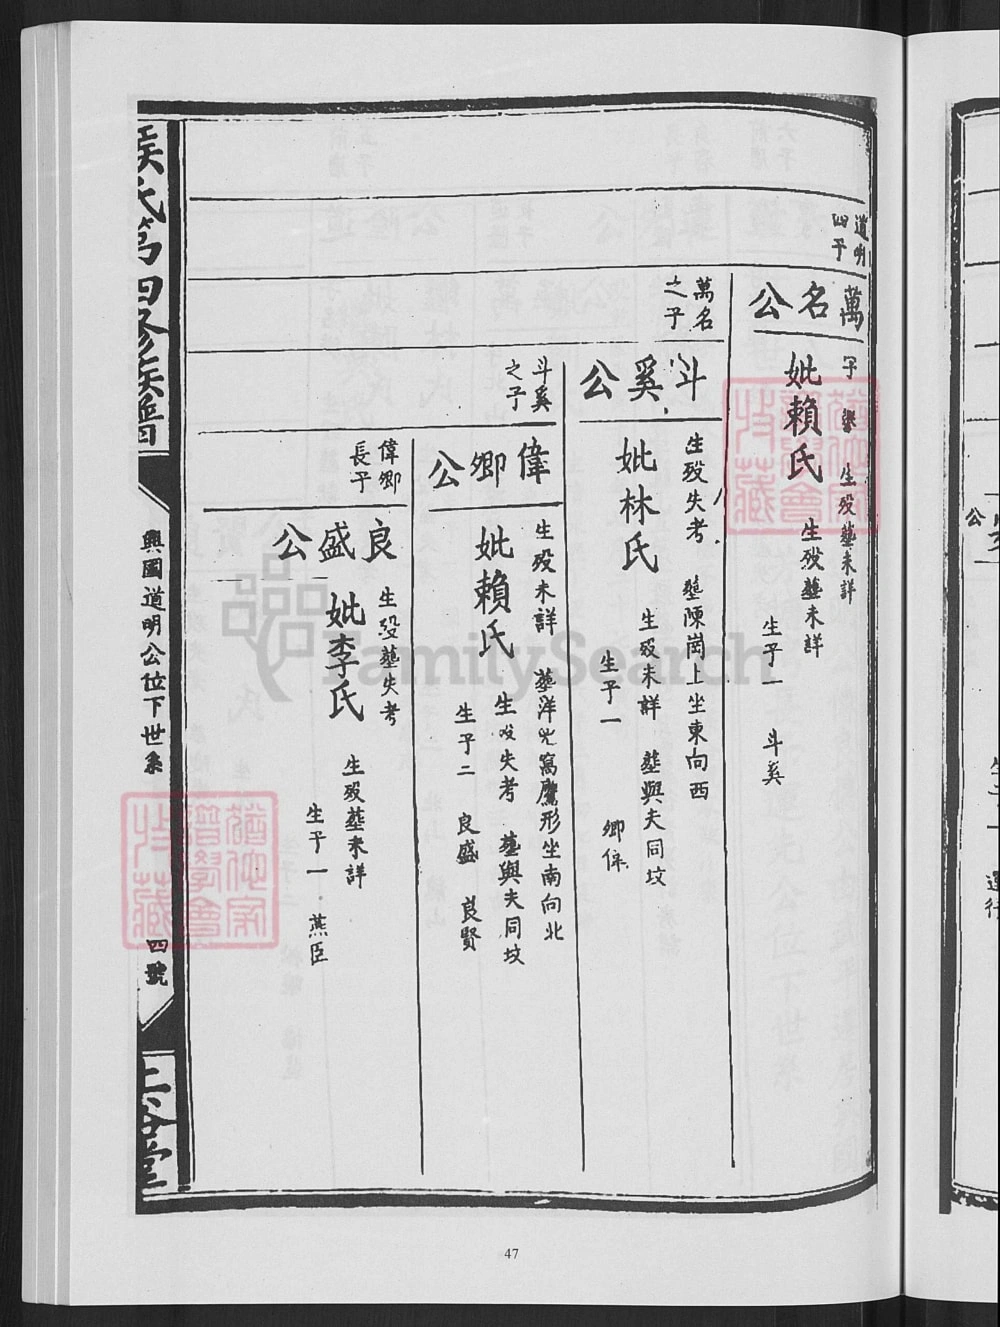 道明
四子
萬名公
字樂 生歿塟未詳
妣賴氏
生歿塟未詳
生子一 斗奚
萬名
之子
斗奚公
生歿失考 塟陳崗上坐東向西
妣林氏
生歿未詳 塟與夫同坟
生子一
斗奚
之子
偉卿公
生歿未詳 塟洋光窩鷹形坐南向北
妣賴氏
生歿失考 塟與夫同坟
生子二 良盛 良賢
偉卿
長子
良盛公
生歿塟失考
妣李氏
生歿塟未詳
生子一 燕臣
侯氏第四修族譜
興國道明公位下世系
四號
上谷堂
47
FamilySearch